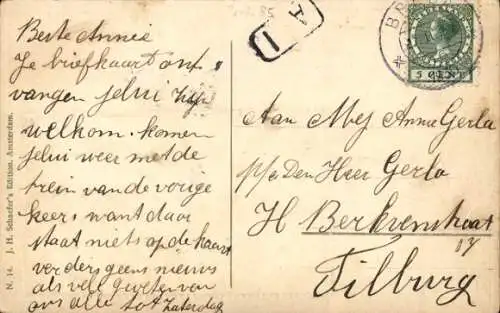 Beste Annie
Je briefkaart ont
vangen jelui zijn
welkom. komen
jelui weer met de
trein van de vorige
keer want daar
staat niets op de kaart
verders geen nieuws
als veel groeten van
ons alle tot Zaterdag
N. 14. J. H. Schaefer's Edition, Amsterdam.
A I
BR
5 CENT
Aan Mej Annie Gerla
p/a Den Heer Gerla
H Berkvenstraat
17
Tilburg